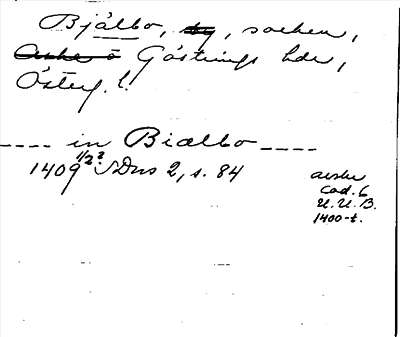 Bjälbo, by, socken,
Aska o Göstrings hdr,
Österg. l.
---- in Biælbo ----
1409 1/2? SDns 2, s. 84
avskr
Cod. 6
U.U.B.
1400-t.